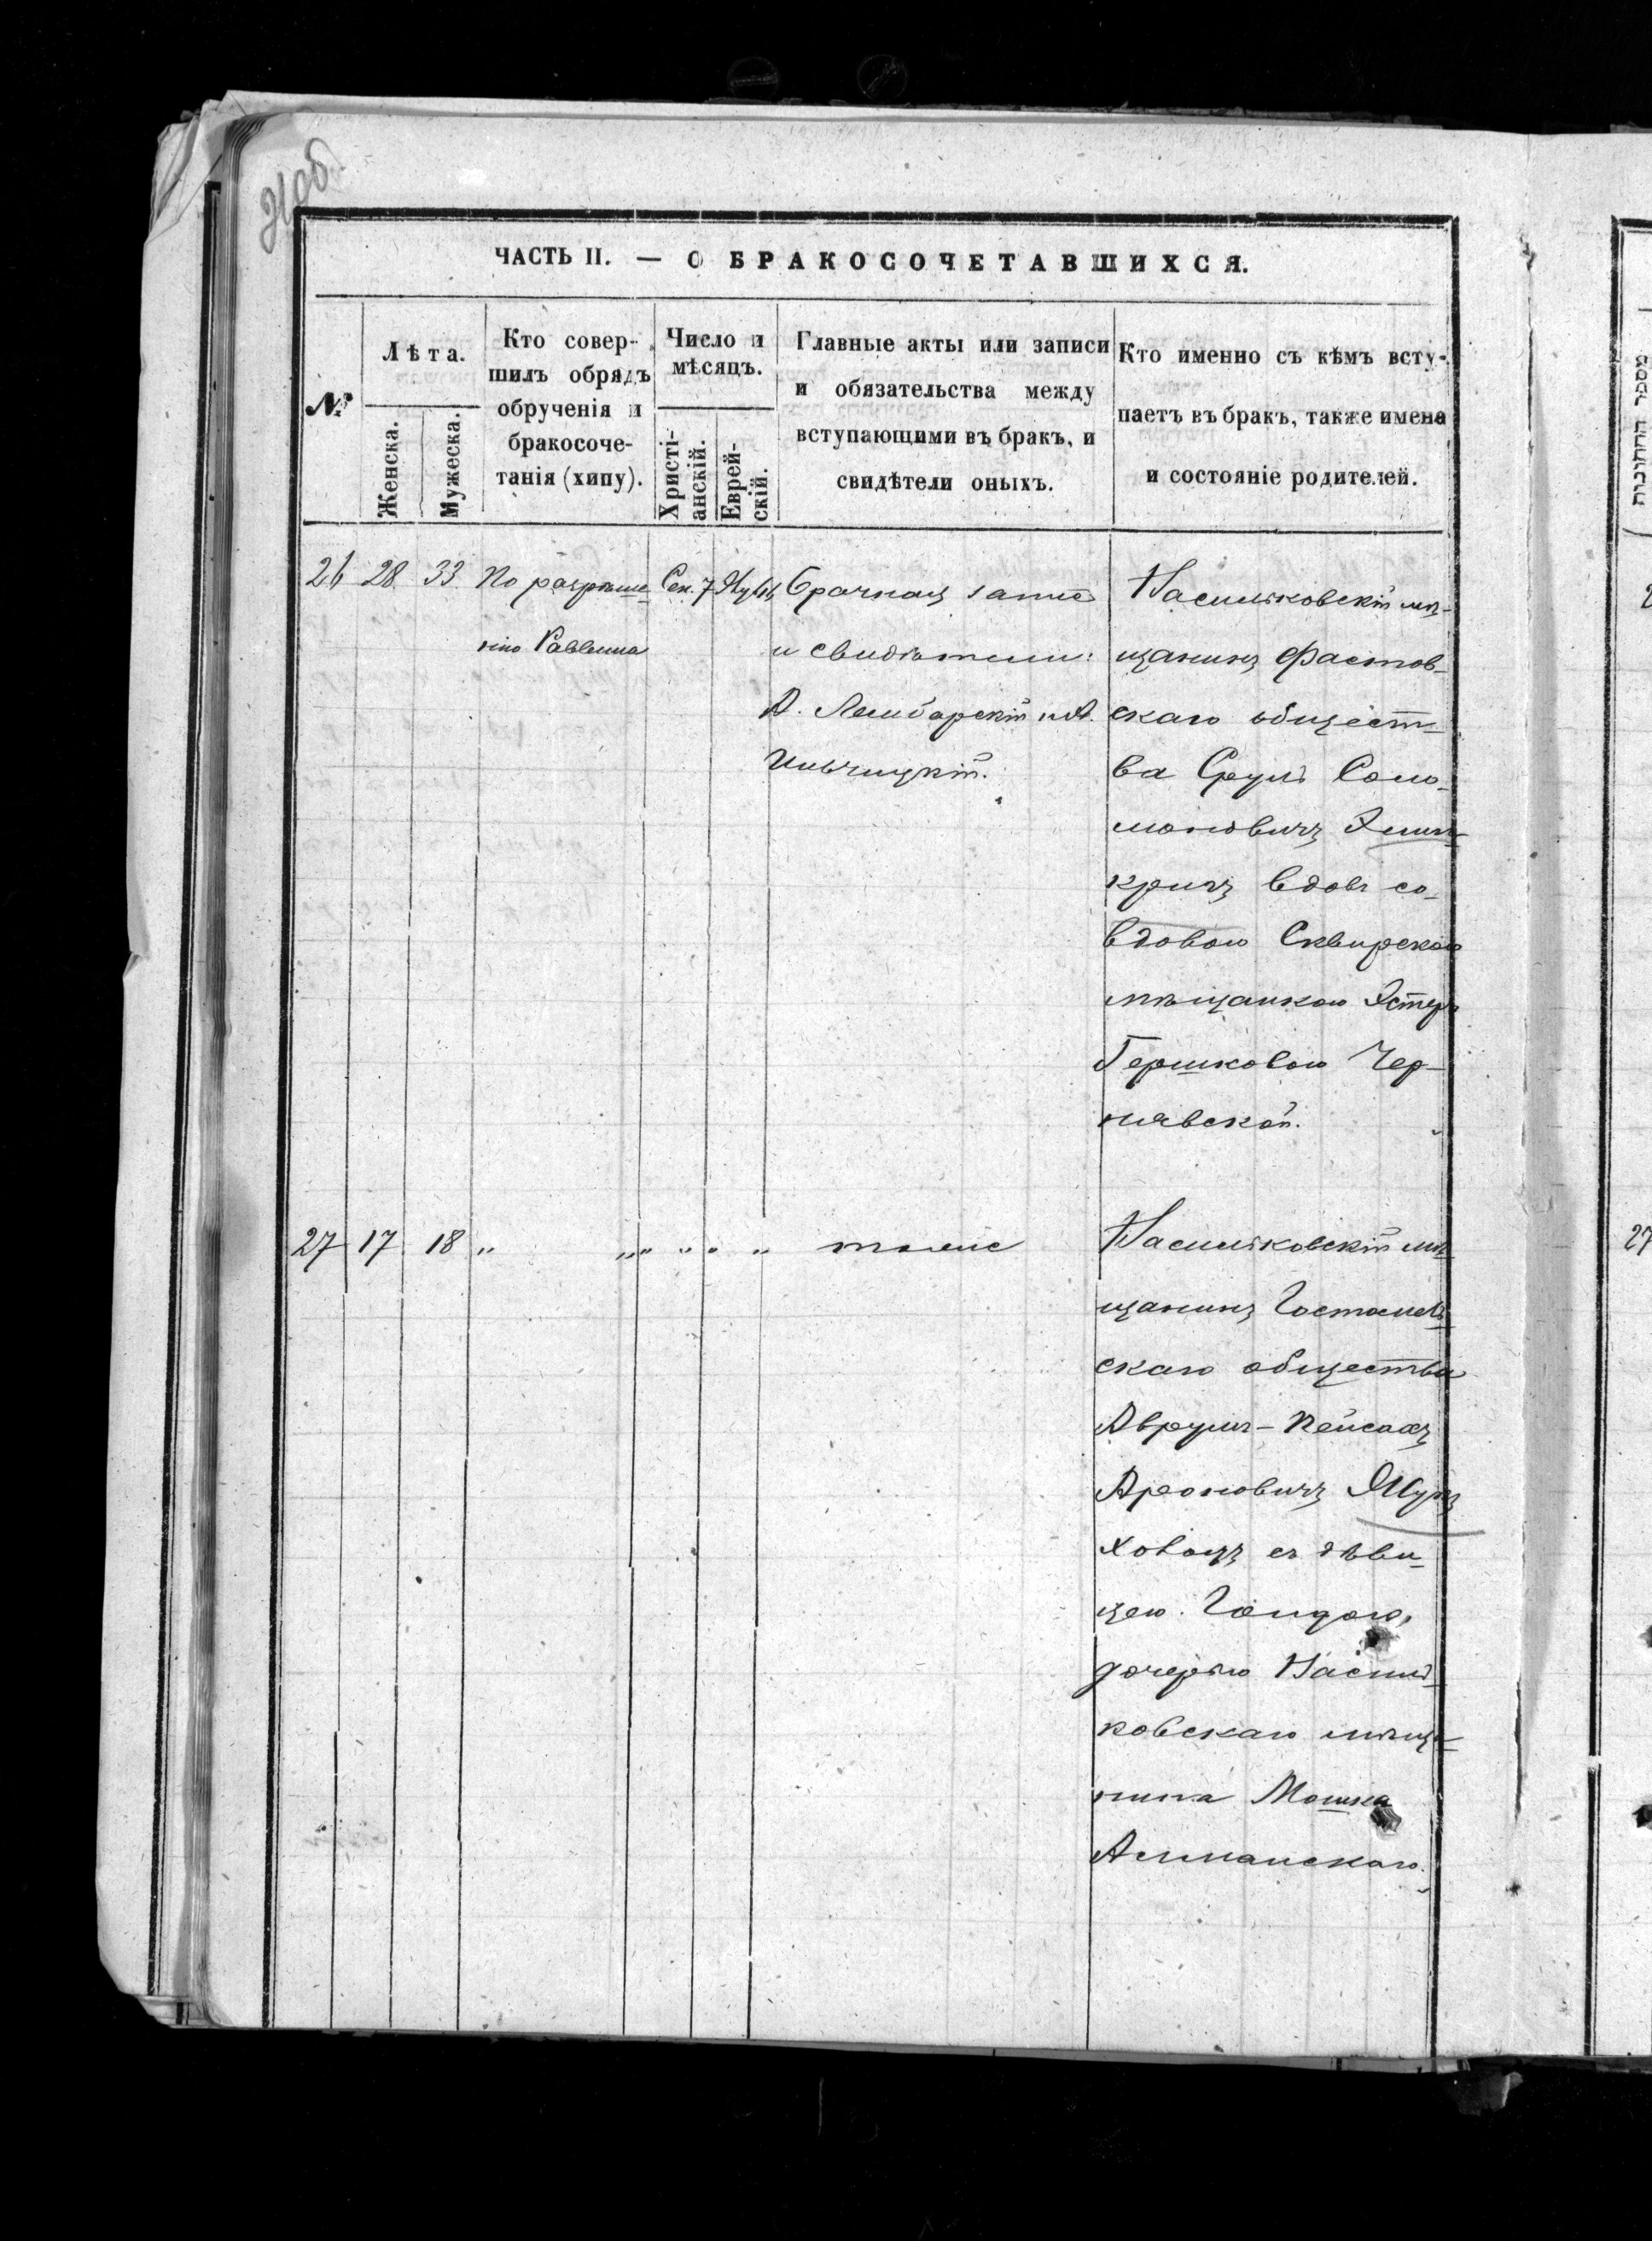 ЧАСТЬ II. — О БРАКОСОЧЕТАВШИХСЯ.
№
Лѣта.
Женска.
Мужеска.
Кто совер-
шилъ обрядъ
обрученія и
бракосоче-
танія (хипу).
Число и
мѣсяцъ.
Христі-
анскій.
Еврей-
скій.
Главные акты или записи
и обязательства между
вступающими въ бракъ, и
свидѣтели оныхъ.
Кто именно съ кѣмъ всту-
паетъ въ бракъ, также имена
и состояніе родителей.
26 28 33 По разрѣше-
нію Раввина
Сен. 7
Брачная запись
и свидѣтели:
А.
Васильковскій мѣ-
щанинъ Фастов-
скаго общест-
ва Сруль Соло-
моновичъ
вдовъ со
вдовою Сквирскою
мѣщанкою Эстеръ
Гершковою Чер-
нявской.
27 17 18 „ „ „ „ „ „ тоже
Васильковскій мѣ-
щанинъ Гостомель-
скаго общества
Аврумъ-Пейсахъ
Ароновичъ
съ дѣви-
цею
дочерью Василь-
ковскаго мѣща-
нина Мошка